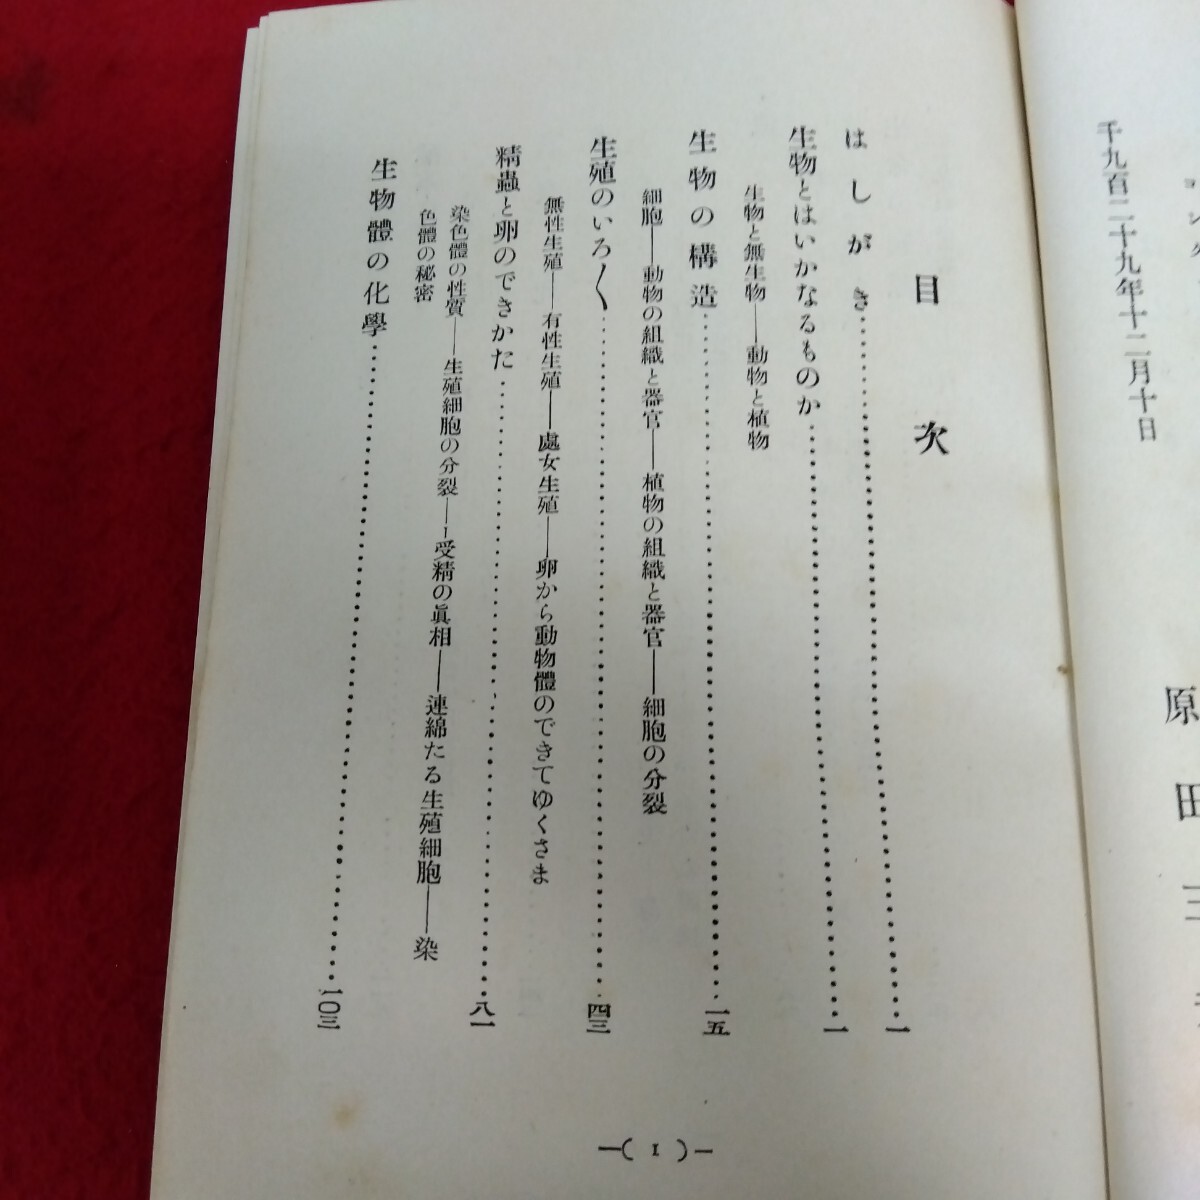 ョンタ
千九百二十九年十二月十日
原田三
目次
はしがき…………一
生物とはいかなるものか…………一
生物と無生物――動物と植物
生物の構造…………一五
細胞――動物の組織と器官――植物の組織と器官――細胞の分裂
生殖のいろ〱…………四三
無性生殖――有性生殖――處女生殖――卵から動物體のできてゆくさま
精蟲と卵のできかた…………八一
染色體の性質――生殖細胞の分裂――受精の眞相――連綿たる生殖細胞――染
色體の秘密
生物體の化學…………一〇三
―( 1 )―